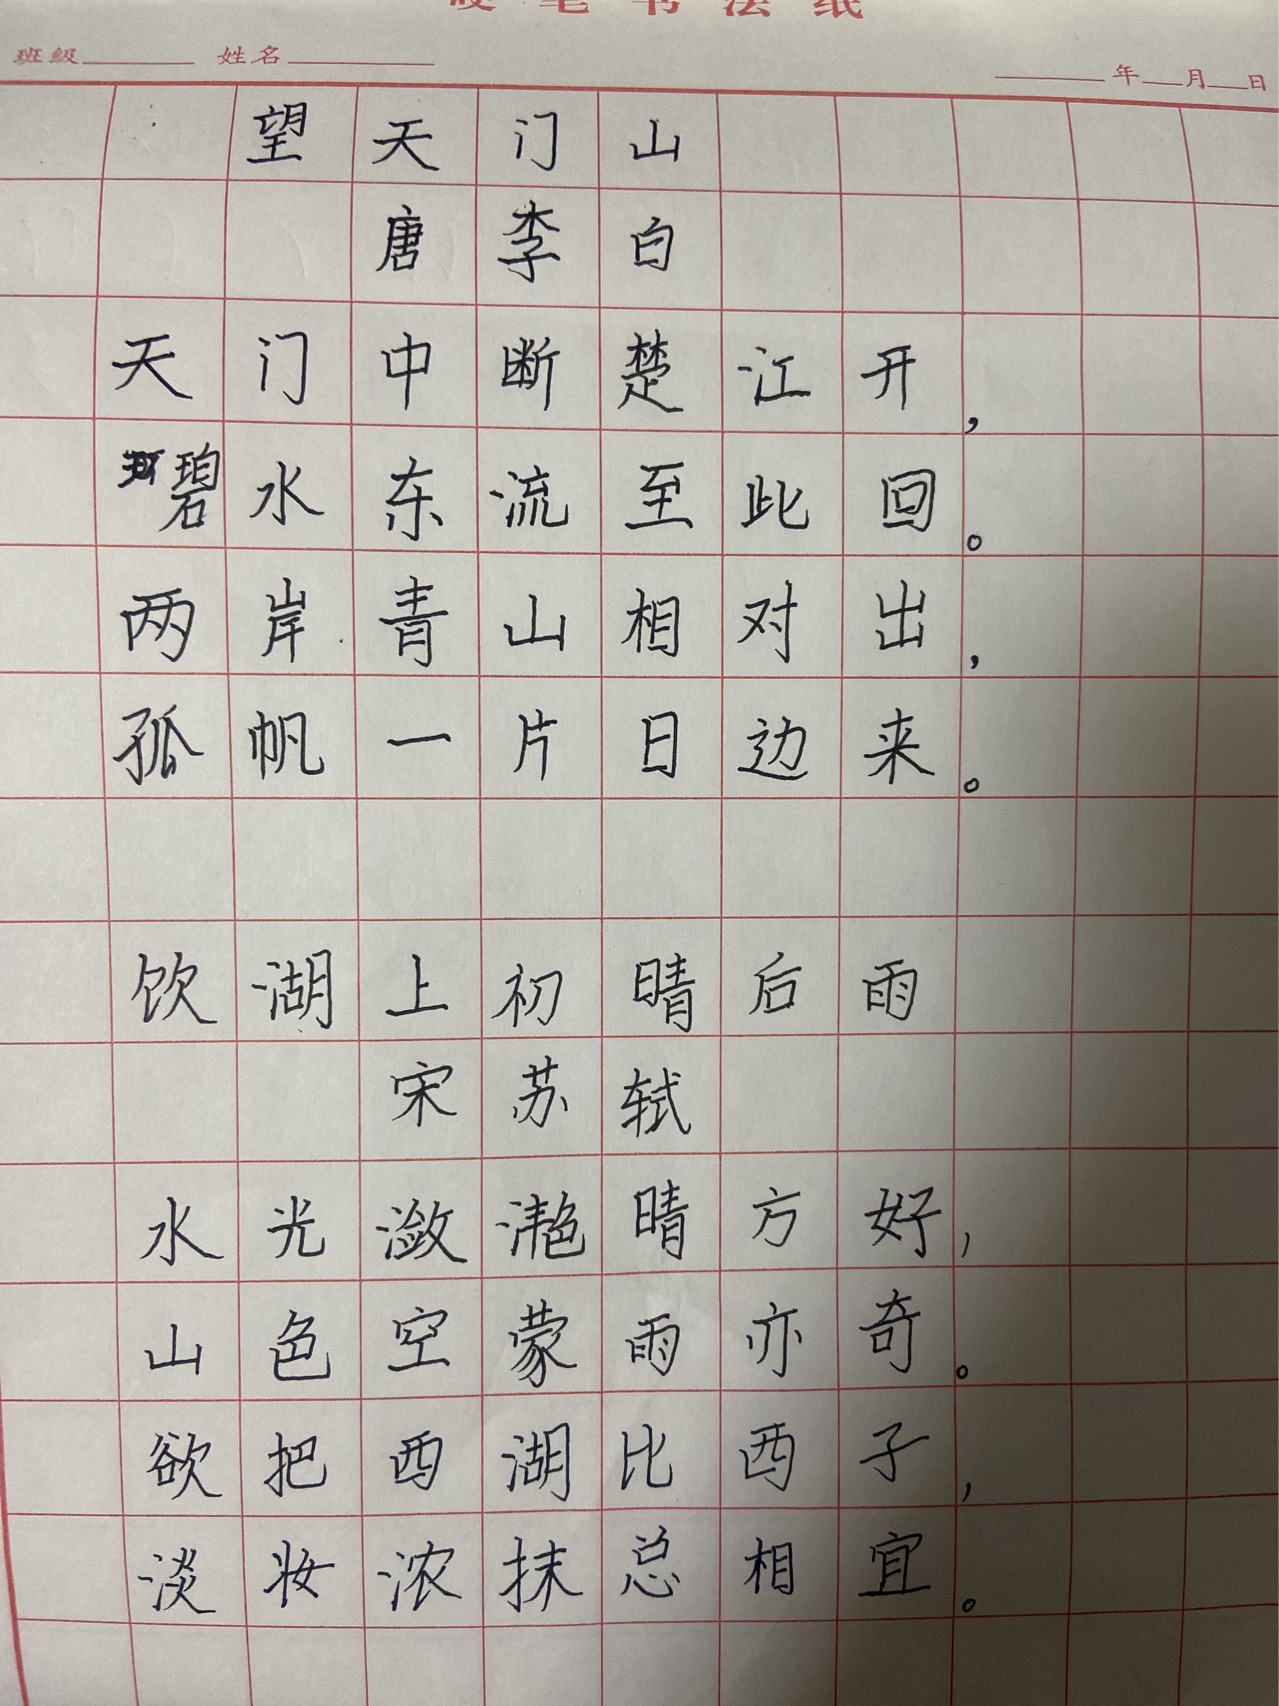 硬笔书法纸
班级 姓名 年 月 日
望天门山
唐李白
天门中断楚江开，
碧水东流至此回。
两岸青山相对出，
孤帆一片日边来。
饮湖上初晴后雨
宋苏轼
水光潋滟晴方好，
山色空蒙雨亦奇。
欲把西湖比西子，
淡妆浓抹总相宜。